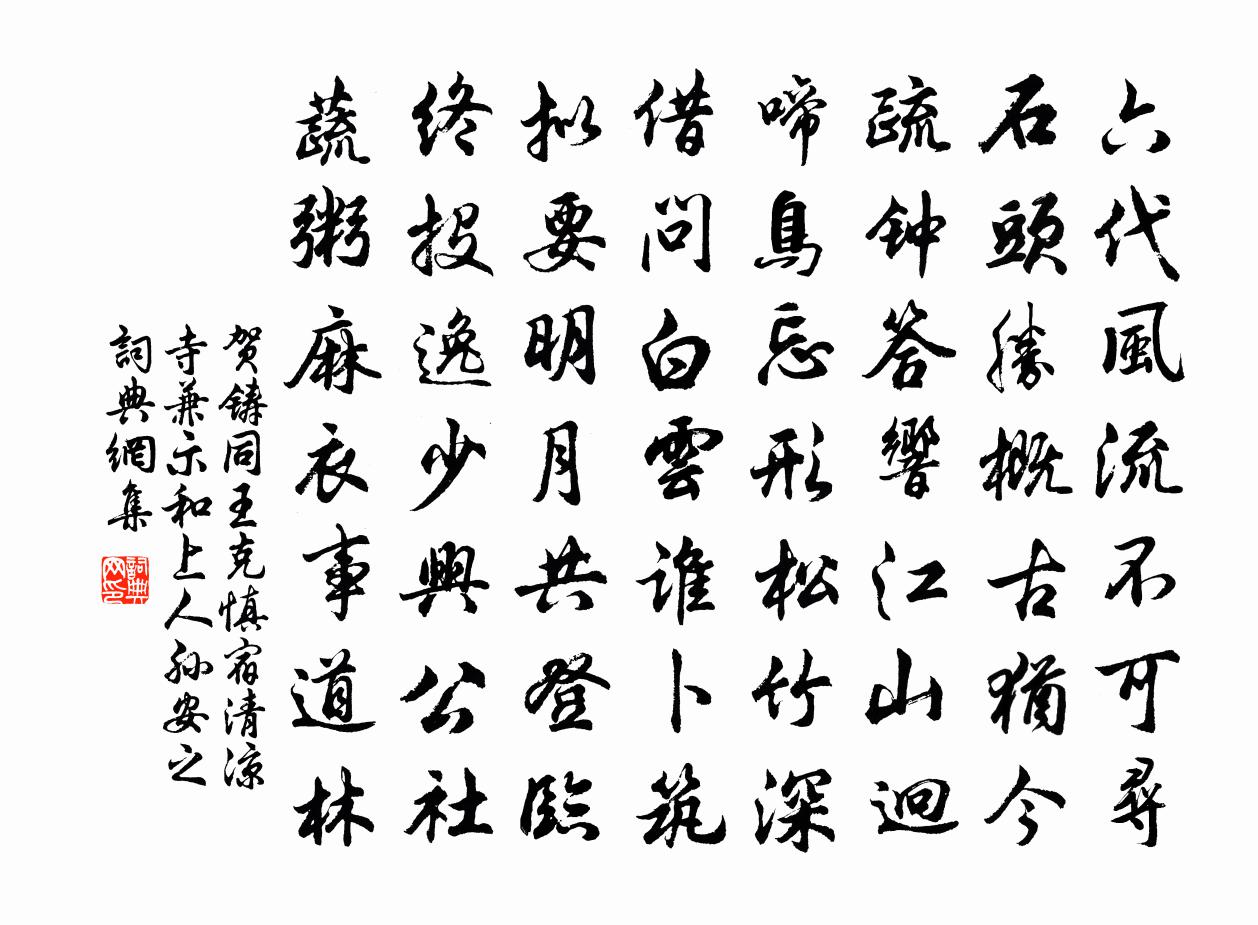 六代風流不可尋
石頭勝概古猶今
疏钟答響江山迥
啼鳥忘形松竹深
借問白雲誰卜筑
拟要明月共登臨
终投逸少興公社
蔬粥麻衣事道林
贺鑄同王克慎宿清凉
寺兼示和上人孙安之
詞典網集
詞典
网印